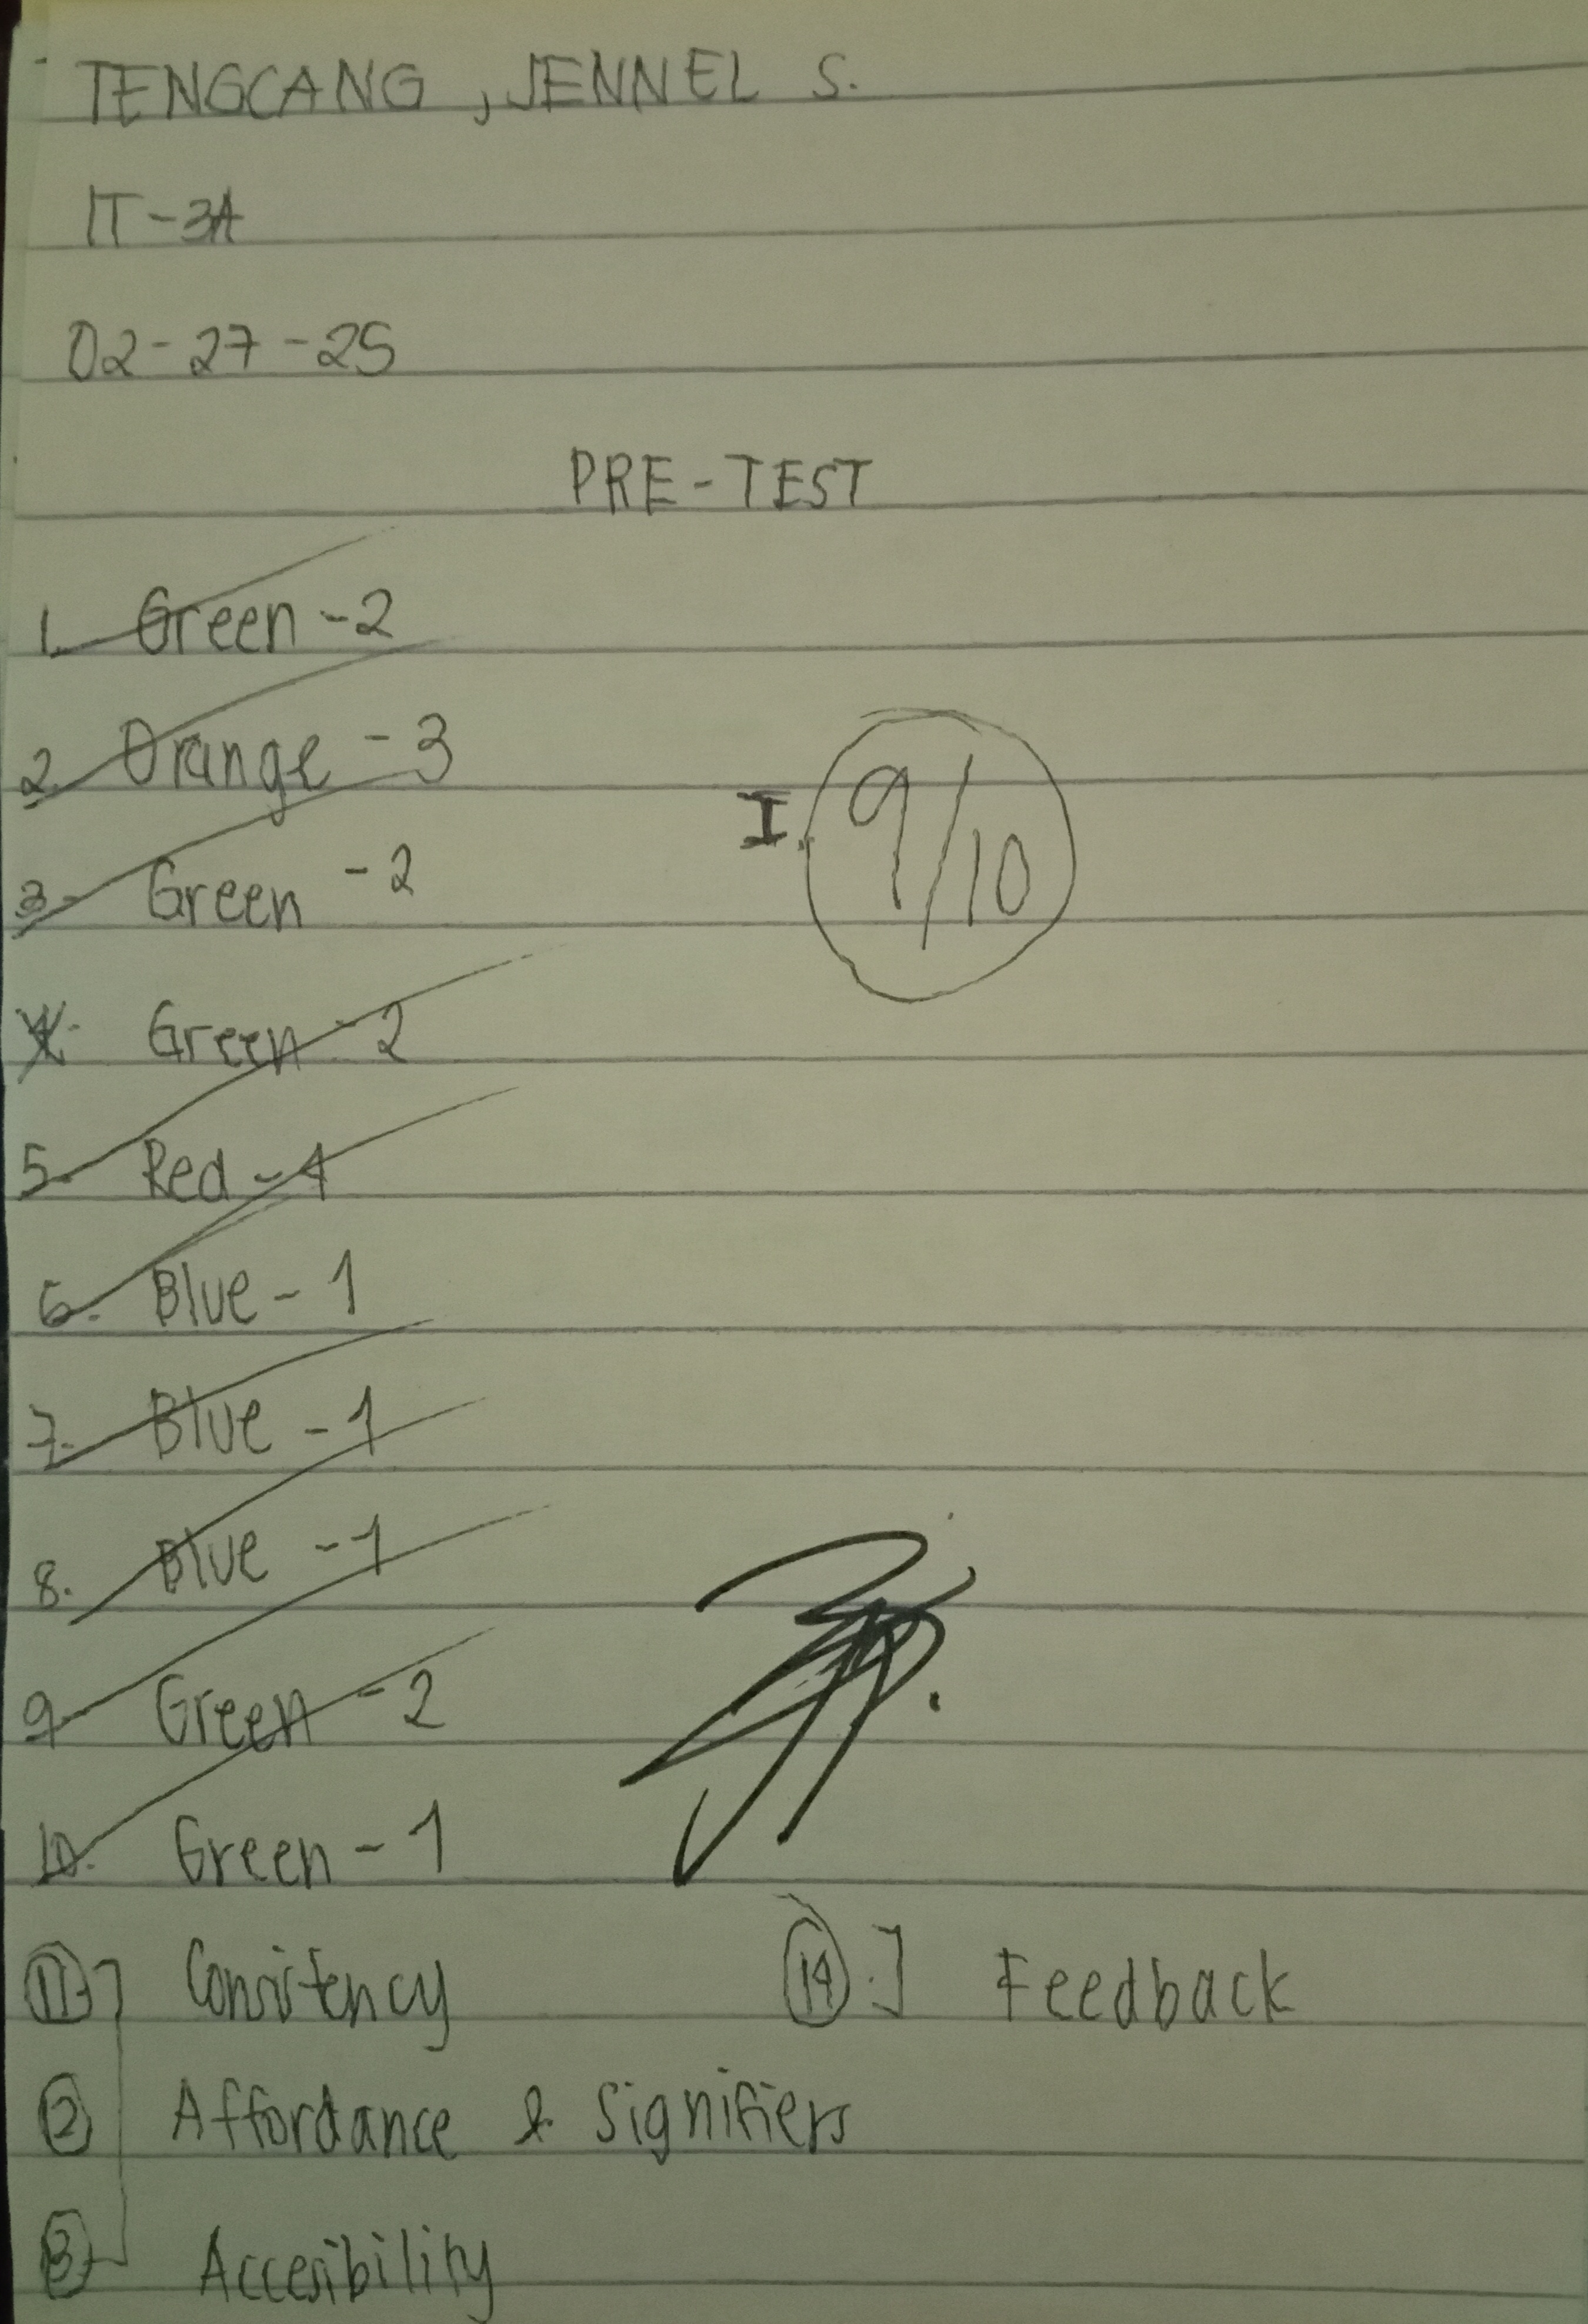 TENGCANG, JENNEL S.
IT-3A
02-27-25
PRE-TEST
1. Green -2
2. Orange -3
3. Green -2
I. 9/10
4. Green -2
5. Red -4
6. Blue -1
7. Blue -1
8. Blue -1
9. Green -2
10. Green -1
11. Consistency
14.] Feedback
12 Affordance & Signifiers
13 Accesibility